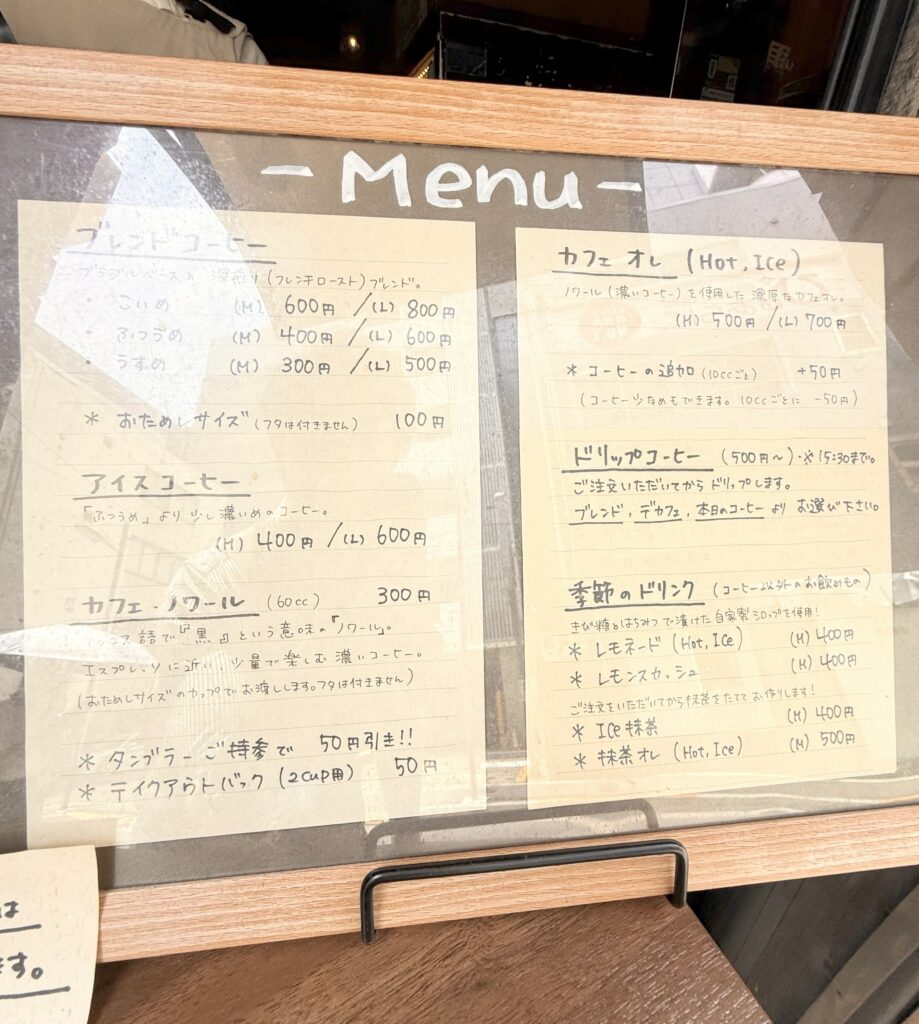 - Menu -
ブレンドコーヒー
ブラジルベースの深煎り(フレンチロースト)ブレンド。
・ こいめ (M) 600円 /(L) 800円
・ ふつうめ (M) 400円 /(L) 600円
・ うすめ (M) 300円 /(L) 500円
* おためしサイズ(フタは付きません) 100円
アイスコーヒー
「ふつうめ」より少し濃いめのコーヒー。
(M) 400円 /(L) 600円
カフェ・ノワール (60cc) 300円
フランス語で『黒』という意味の「ノワール」。
エスプレッソに近い、少量で楽しむ濃いコーヒー。
(おためしサイズのカップでお渡しします。フタは付きません)
* タンブラーご持参で 50円引き!!
* テイクアウトバック(2cup用) 50円
カフェ オレ (Hot, Ice)
ノワール(濃いコーヒー)を使用した濃厚なカフェオレ。
(M) 500円 /(L) 700円
* コーヒーの追加(10ccごと) +50円
(コーヒー少なめもできます。10ccごとに -50円)
ドリップコーヒー (500円〜)・※15:30まで。
ご注文いただいてからドリップします。
ブレンド、デカフェ、本日のコーヒーよりお選び下さい。
季節のドリンク (コーヒー以外のお飲みもの)
きび糖。はちみつで漬けた自家製シロップを使用!
* レモネード (Hot, Ice) (M) 400円
* レモンスカッシュ (M) 400円
ご注文をいただいてから抹茶をたててお作りします!
* Ice抹茶 (M) 400円
* 抹茶オレ (Hot, Ice) (M) 500円
は
ます。